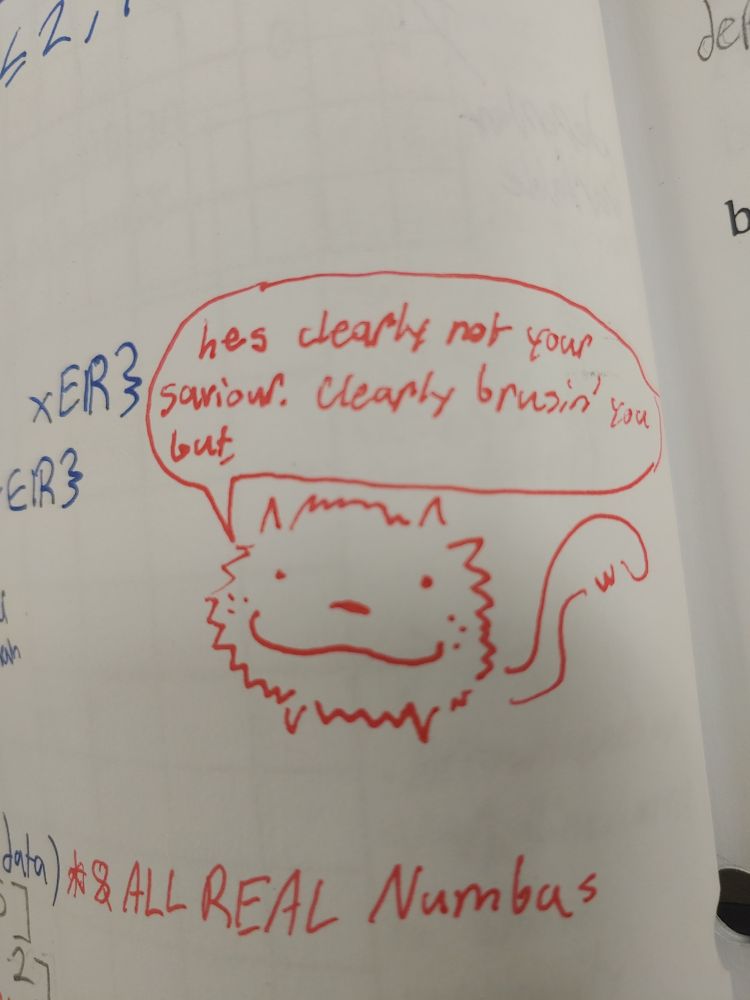 ≤2,
def
b
xEIR}
EIR}
hes clearly not your
saviour. Clearly brusin' you
but
w
data) *& ALL REAL Numbas
2